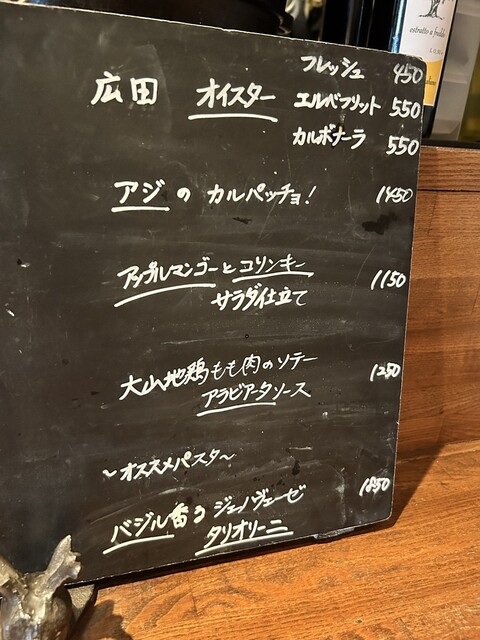 フレッシュ 450
広田 オイスター エルベフリット 550
カルボナーラ 550
アジの カルパッチョ! 1450
アップルマンゴーとコリンキー 1150
サラダ仕立て
大山地鶏もも肉のソテー 1250
アラビアータソース
〜オススメパスタ〜
バジル香る ジェノヴェーゼ 1850
タリオリーニ
estratto a freddo